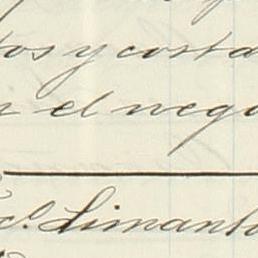 tos y costa
n el nego
co. Limanto